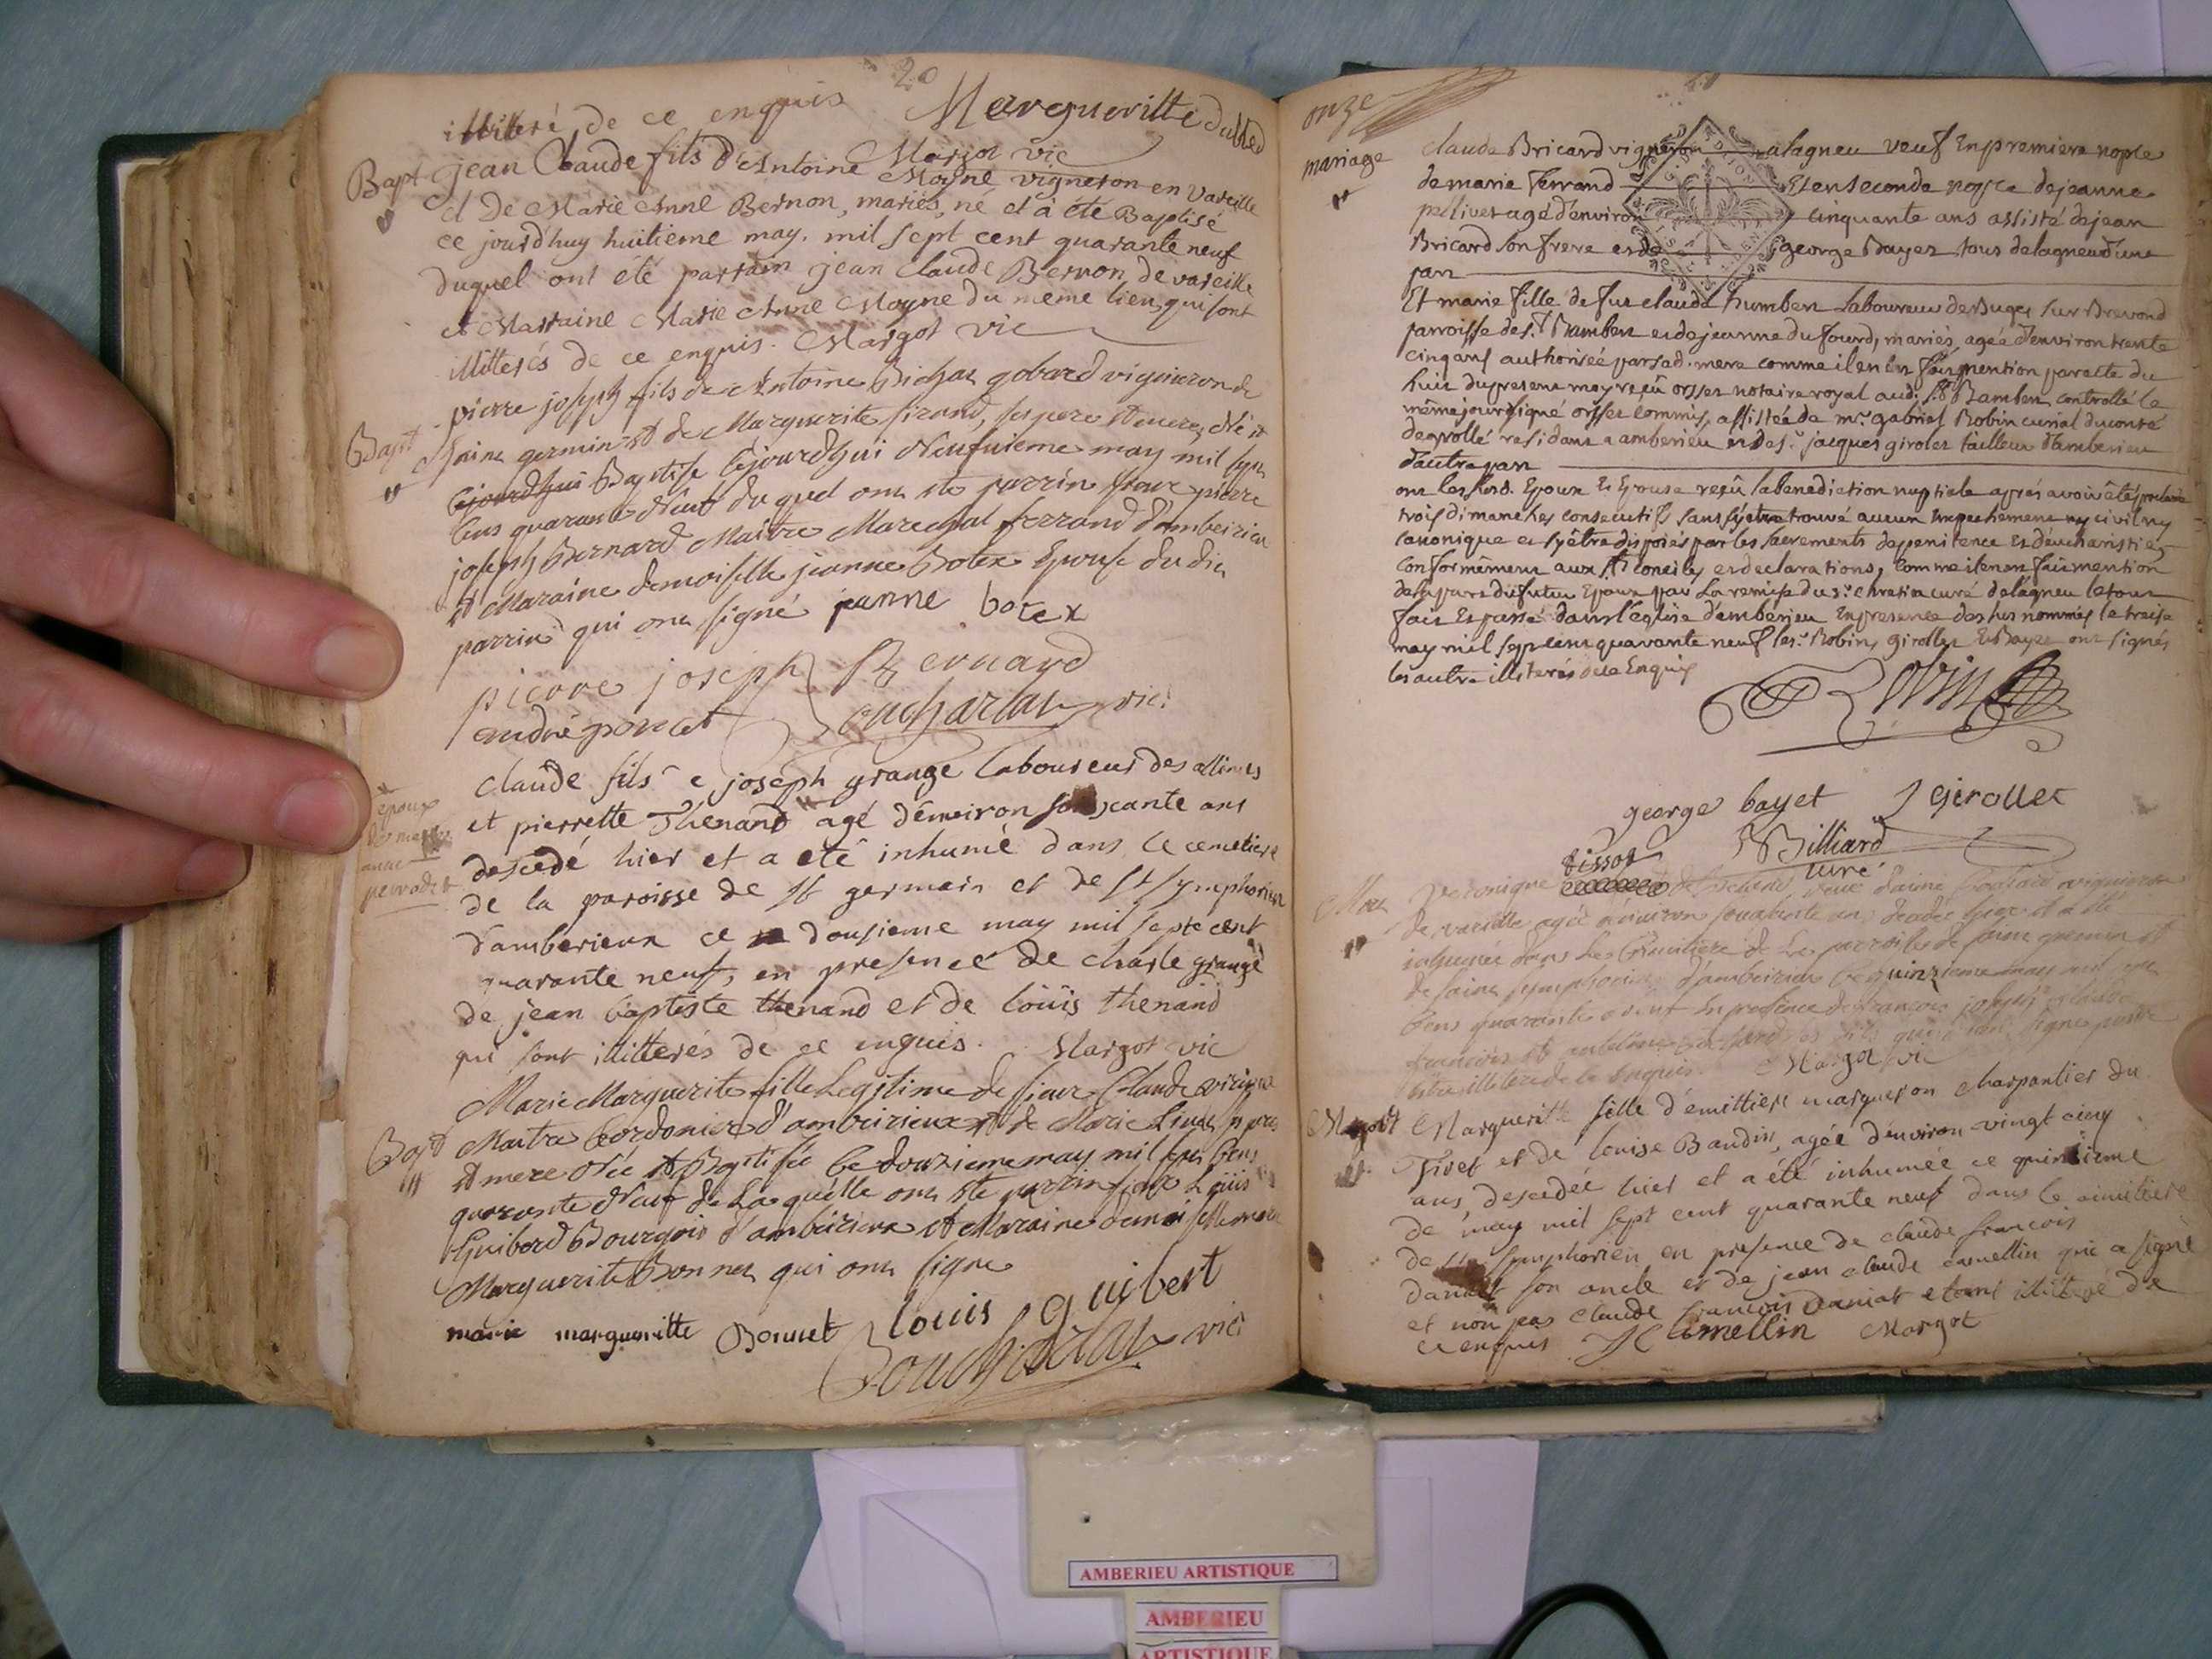 20
illiteré de ce enquis Margueritte
Margot vic
Bapt jean Claude fils d'Antoine Moyne vigneron en Vareille
et De Marie Anne Bernon, mariés, né et à été Baptisé
ce jourd'huy huitieme may. mil sept cent quarante neuf
duquel ont été parrain jean Claude Bernon de vareille
et Marraine Marie Anne Moyne du meme lieu, qui sont
illiterés de ce enquis. Margot vic
pierre joseph fils de Antoine gobard vigneron de
Bapt Saint germin et de Marguerite sirand, ses pere et mere, Né et
cejourdhui Baptise cejourdhui Neufvieme may mil sept
Cens quarante Neuf du quel ont ete parrin sieur pierre
joseph Bernard Maitre Marechal ferrand d'ambeirieu
et Maraine demoiselle jeanne Botex Epouse du dit
parrin qui ont signé jeanne botex
pierre joseph Bernard
andré poncet vic:
claude fils de joseph grange laboureur des allimes
et pierrette Thenand agé d'environ soixcante ans
époux
de
anne
descedé hier et a eté inhumé dans le cemetiere
de la paroisse de St germain et de St symphorien
d'amberieux ce dousieme may mil septe cent
quarante neuf, en presence de charle grange
de jean baptiste thenand et de loüis thenand
qui sont illitterés de ce enquis. Margot vic
Marie Marguerite fille Legitime de sieur Claude
Bapt Maitre Cordonier d'ambeirieux et de Marie
et mere Née et Baptisée le douzieme may mil sept Cens
quarente Neuf de Laquelle ont ete parrin sieur Louis
Guiberd Bourgois d'ambeirieux et Maraine demoiselle marie
Marguerite Bonnet qui ont signe
marie margueritte Bonnet louis guibert
vic:
onze
mariage claude Bricard vigneron a lagneu veuf En premiere nopce
de marie ferrand Et en seconde nopce de jeanne
pelivet agé d'environ cinquante ans assisté de jean
Bricard son frere et de george Bayet tous de lagneu d'une
part
Et marie fille de fut claude humbert Laboureur de Buges sur Brevond
parroisse de St Rambert et de jeanne dufourd, mariés, agée d'environ trente
cinq ans authorisée par sad. mere comme il en est fait mention par acte du
huit du present may reçû orsset notaire royal aud. St Rambert controllé le
même jour signé orsset commis, assistée de mr. gabriel Robin curial du comté
resident a amberieu et de sr. jacques girolet tailleur d'amberieu
d'autre part
ont lesusd. Epoux Et Epouse reçû la benediction nuptiale aprés avoir été proclamé
trois dimanches consecutifs sans s'y etre trouvé aucun Empechement ny civil ny
canonique et s'y être disposés par les sacrements de penitence Et d'eucharistie
conformément aux sts conciles et declarations, comme il en est fait mention
de la part du futur Epoux par La remise du sr. chretin curé de lagneu le tout
fait Et passé dans l'eglise d'amberieu En presence des sus nommés le treise
may mil sept cens quarante neuf les srs. Robin, girollet Et Bayet ont signés
les autre illiterés de ce Enquis
Robin
george bayet J Girollet
Billiard
curé
tissot
veronique
de vareille agée d'environ soixante ans decedee hier et a été
inhumée dans Le Cimetiere de La parroisse de saint germin et
de saint symphorien d'ambeirieu le quinzieme may mil sept
Cens quarante neuf En presence de francois joseph claude
Margot vic
Margueritte fille d'emittiere marqueron charpantier du
Tiret et de louise Baudin, agée d'environ vingt cinq
ans, descedée hier et a été inhumée ce quinsieme
de may mil sept cent quarante neuf dans le cimitiere
de St symphorien en presence de claude francois
son oncle et de jean claude camellin qui a signé
et non pas claude francois etant illitteré de
ce enquis JC Camellin Margot
AMBERIEU ARTISTIQUE
AMBERIEU
ARTISTIQUE